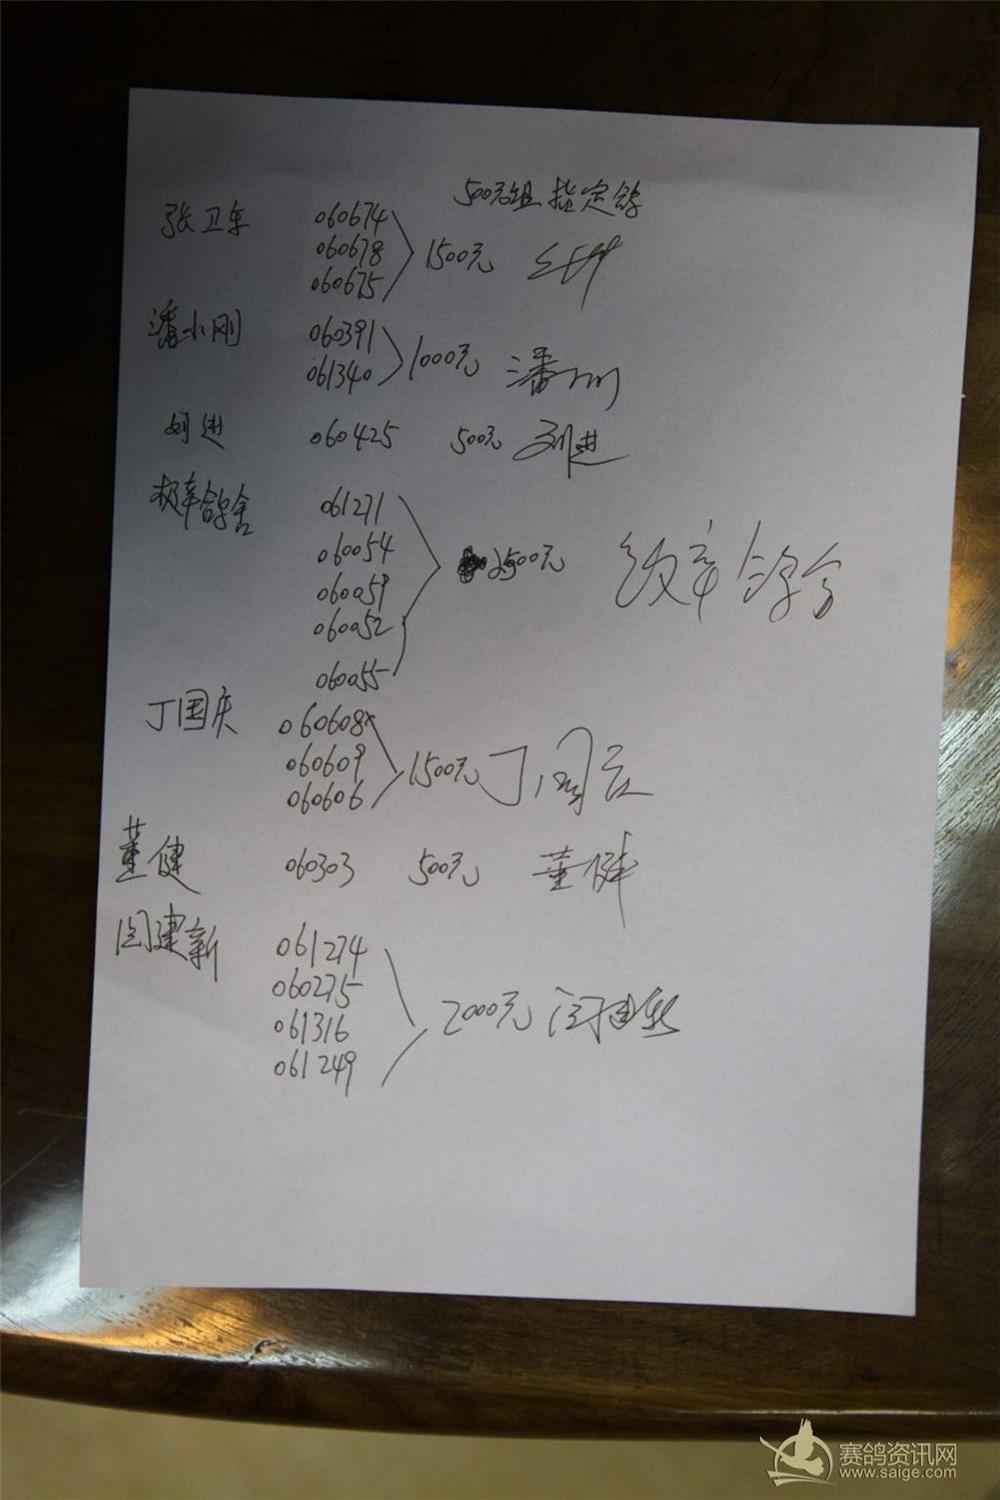 500元组 指定鸽
张卫东 060674
060678 1500元
060675
潘小刚 060391
061340 1000元 潘
刘进 060425 500元 刘进
鸽舍 061271
060054 2500元 鸽舍
060059
060052
060055
丁国庆 060608
060609 1500元 丁国庆
060606
董健 060303 500元 董健
闫建新 061274
060275
061316 2000元 闫建新
061249
赛鸽资讯网
www.saige.com